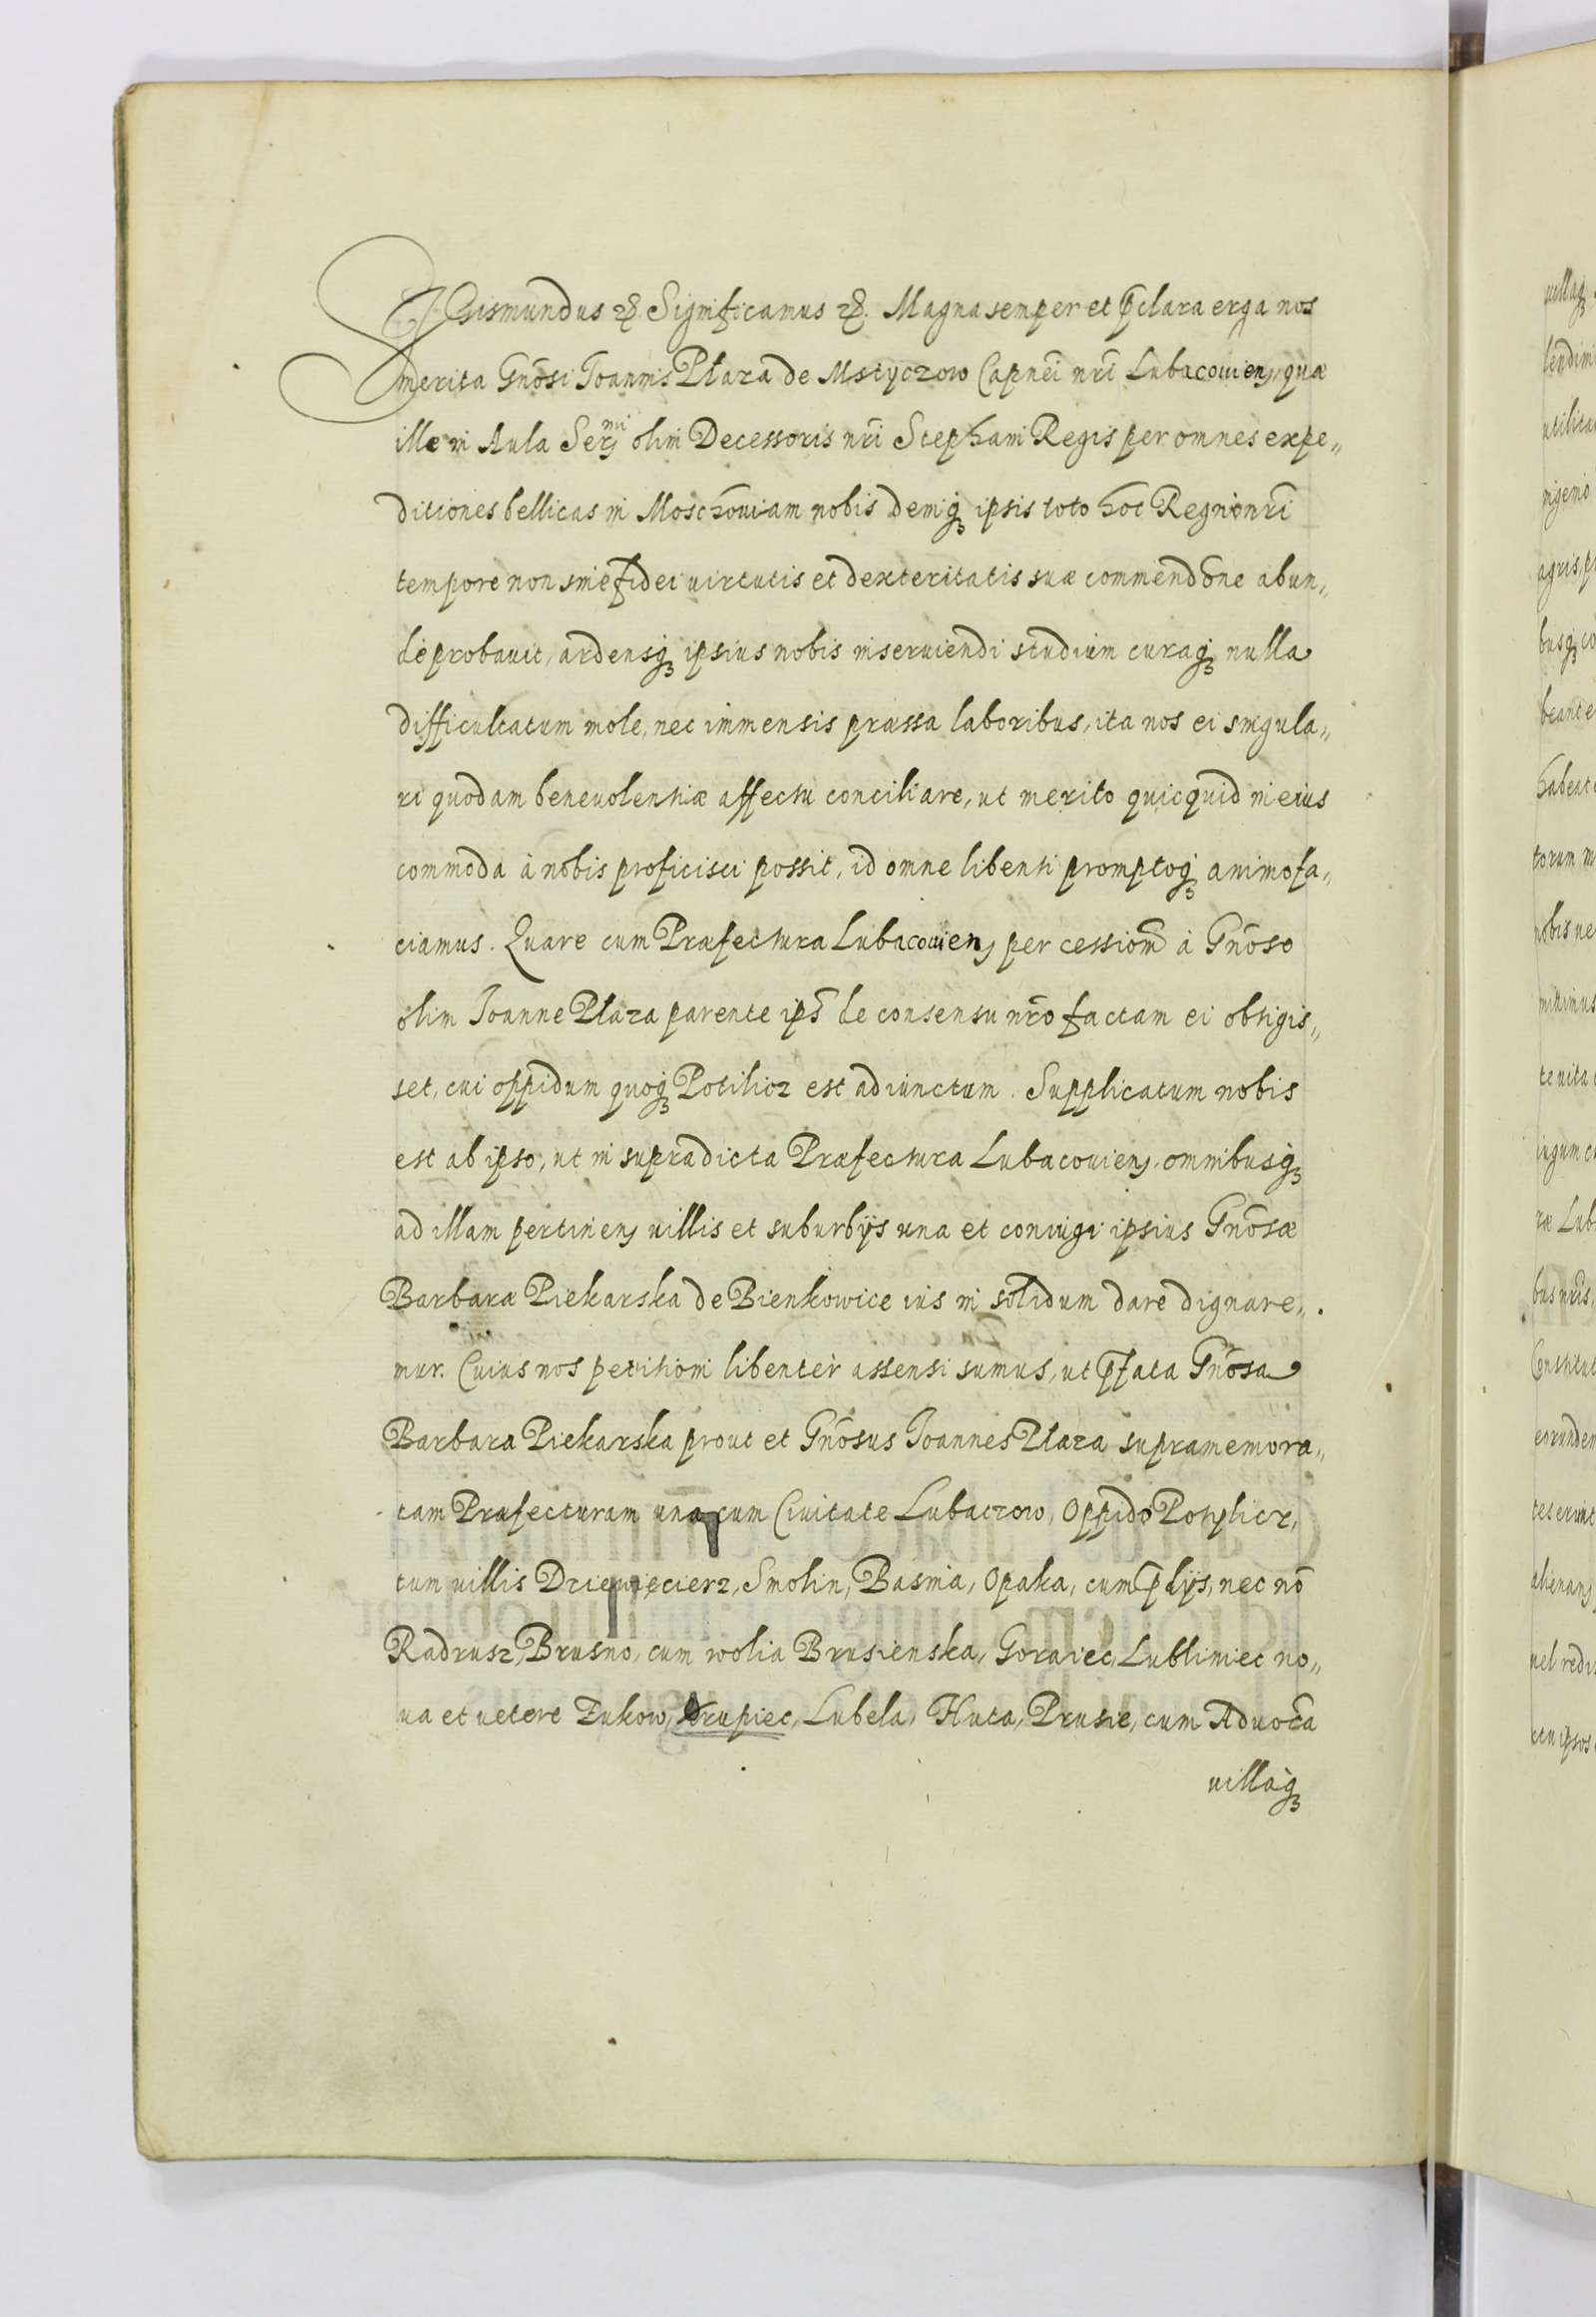 Sigismundus &c. Significamus &c. Magna semper et p̄clara erga nos
merita Gn̄osi Joannis Płaza de Mstyczow Capnei nr̄i Lubacouien, quæ
ille in Aula Ser̄mi olim Decessoris nr̄i Stephani Regis per omnes expe„
ditiones bellicas in Moschouiam nobis deniq₃ ipsis toto hoc Regni nr̄i
tempore non sine fidei uirtutis et dexteritatis suæ commendōne abun„
de probauit, ardensq₃ ipsius nobis inseruiendi studium curaq₃ nulla
difficultatum mole, nec immensis præssa laboribus, ita nos ei singula„
ri quodam beneuolentiæ affectu conciliare, ut merito quicquid in eius
commoda à nobis proficisci possit, id omne libenti promptoq₃ animo fa„
ciamus. Quare cum Præfectura Lubacouien, per cessiom̄ à Gn̄oso
olim Joanne Płaza parente ip̄s de consensu nr̄o factam ei obtigis„
set, cui oppidum quoq₃ Potilicz est adiunctum. Supplicatum nobis
est ab ipso, ut in supradicta Præfectura Lubacouien, omnibusq₃
ad illam pertinen, uillis et suburbijs una et coniugi ipsius Gn̄osæ
Barbaræ Piekarska de Bienkowice ius in solidum dare dignare„
mur. Cuius nos petitioni libenter assensi sumus, ut p̄fata Gn̄osa
Barbara Piekarska prout et Gn̄osus Joannes Płaza supramemora„
tam Præfecturam una cum Ciuitate Lubaczow, Oppido Potylicz,
cum uillis Dziewięcierz, Smolin, Basnia, Opaka, cum p̄dijs, nec nō
Radrusz, Brusno, cum wolia Brusienska, Goraiec, Lubliniec no„
ua et uetere Zukow, Krupiec, Lubela, Huta, Prusie, cum Aduoc̄a
uillaq₃